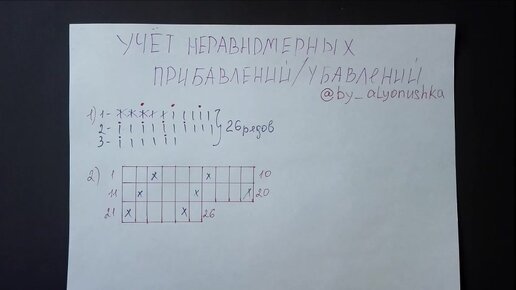 УЧЁТ НЕРАВНОМЕРНЫХ
ПРИБАВЛЕНИЙ/УБАВЛЕНИЙ
@by_alyonushka
1) 1-
2-
3-
26 рядов
2) 1 x x 10
11 x x x 20
21 x x 26